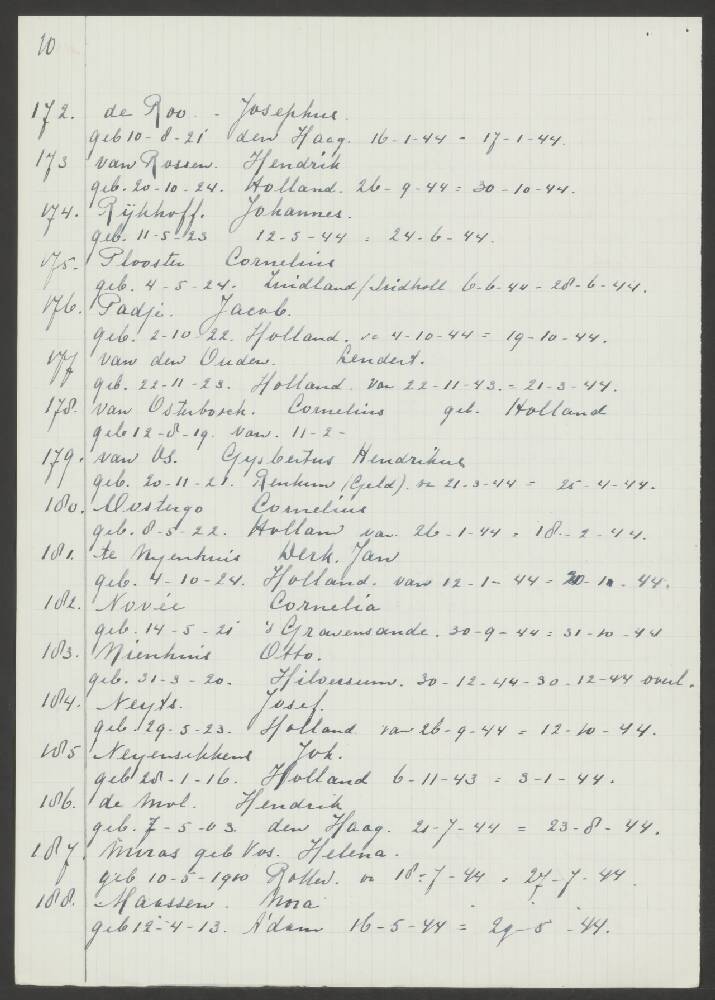 10
172. de Roo. - Josephus.
geb 10-8-21 den Haag. 16-1-44 = 17-1-44.
173 van Rossen. Hendrik
geb. 20-10-24. Holland. 26-9-44 = 30-10-44.
174. Rijkhoff. Johannes.
geb. 11-5-23 12-3-44 = 24-6-44.
175. Plooster Cornelius
geb. 4-5-24. Zuidland/ 6-6-44 - 28-6-44.
176. Padje. Jacob.
geb. 2-10 22. Holland. va 4-10-44 = 19-10-44.
177 van den Ouden. Lendert.
geb. 22-11-23. Holland van 22-11-43. = 21-3-44.
178. van Osterbosch. Cornelius geb. Holland
geb 12-8-19. van. 11-2-
179. van Os. Gysbertus Hendrikus
geb. 20-11-21. Renkum (Geld). va 21-3-44 = 25-4-44.
180. Oostergo Cornelius
geb. 8-5-22. Hollan van 26-1-44 = 18-2-44.
181. te Nyenhuis Derk. Jan
geb. 4-10-24. Holland. van 12-1-44 = 20-1-44.
182. Novée Cornelia
geb. 14-5-21 's Gravensande. 30-9-44 = 31-10-44
183. Nienhuis Otto.
geb. 31-3-20. Hilversum. 30-12-44-30-12-44 overl.
184. Neyts. Josef.
geb. 29-5-23. Holland van 26-9-44 = 12-10-44.
185 Neyensikkens Joh.
geb 28-1-16. Holland 6-11-43 = 3-1-44.
186. de Mol. Hendrik
geb. 7-5-03. den Haag. 21-7-44 = 23-8-44.
187. Miras geb Vos. Helena.
geb 10-5-1900 Rotter. va 18-7-44 = 27-7-44.
188. Maassen. Nora
geb 12-4-13. A'dam 16-5-44 = 29-5-44.